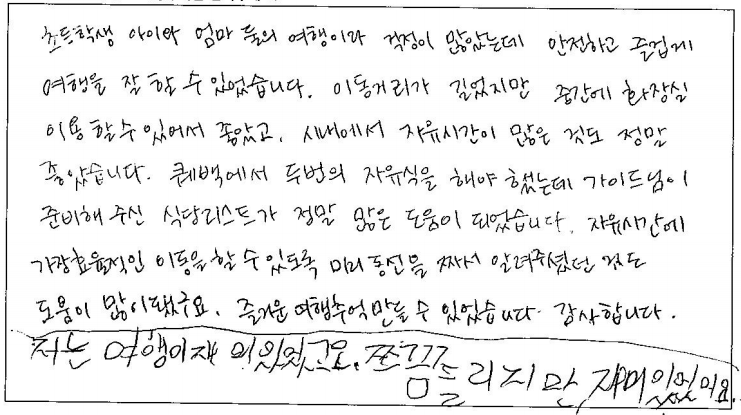 초등학생 아이와 엄마 둘의 여행이라 걱정이 많았는데 안전하고 즐겁게
여행을 잘 할 수 있었습니다. 이동거리가 길었지만 중간에 화장실
이용 할 수 있어서 좋았고, 시내에서 자유시간이 많은 것도 정말
좋았습니다. 퀘백에서 두번의 자유식을 해야 했는데 가이드님이
준비해 주신 식당리스트가 정말 많은 도움이 되었습니다. 자유시간에
가장효율적인 이동을 할 수 있도록 미리 동선을 짜서 알려주셨던 것도
도움이 많이됐구요. 즐거운 여행추억 만들 수 있었습니다. 감사합니다.
저는 여행이재 미있었고요. 쪼끄끄
음들리지만, 재미있었어요.